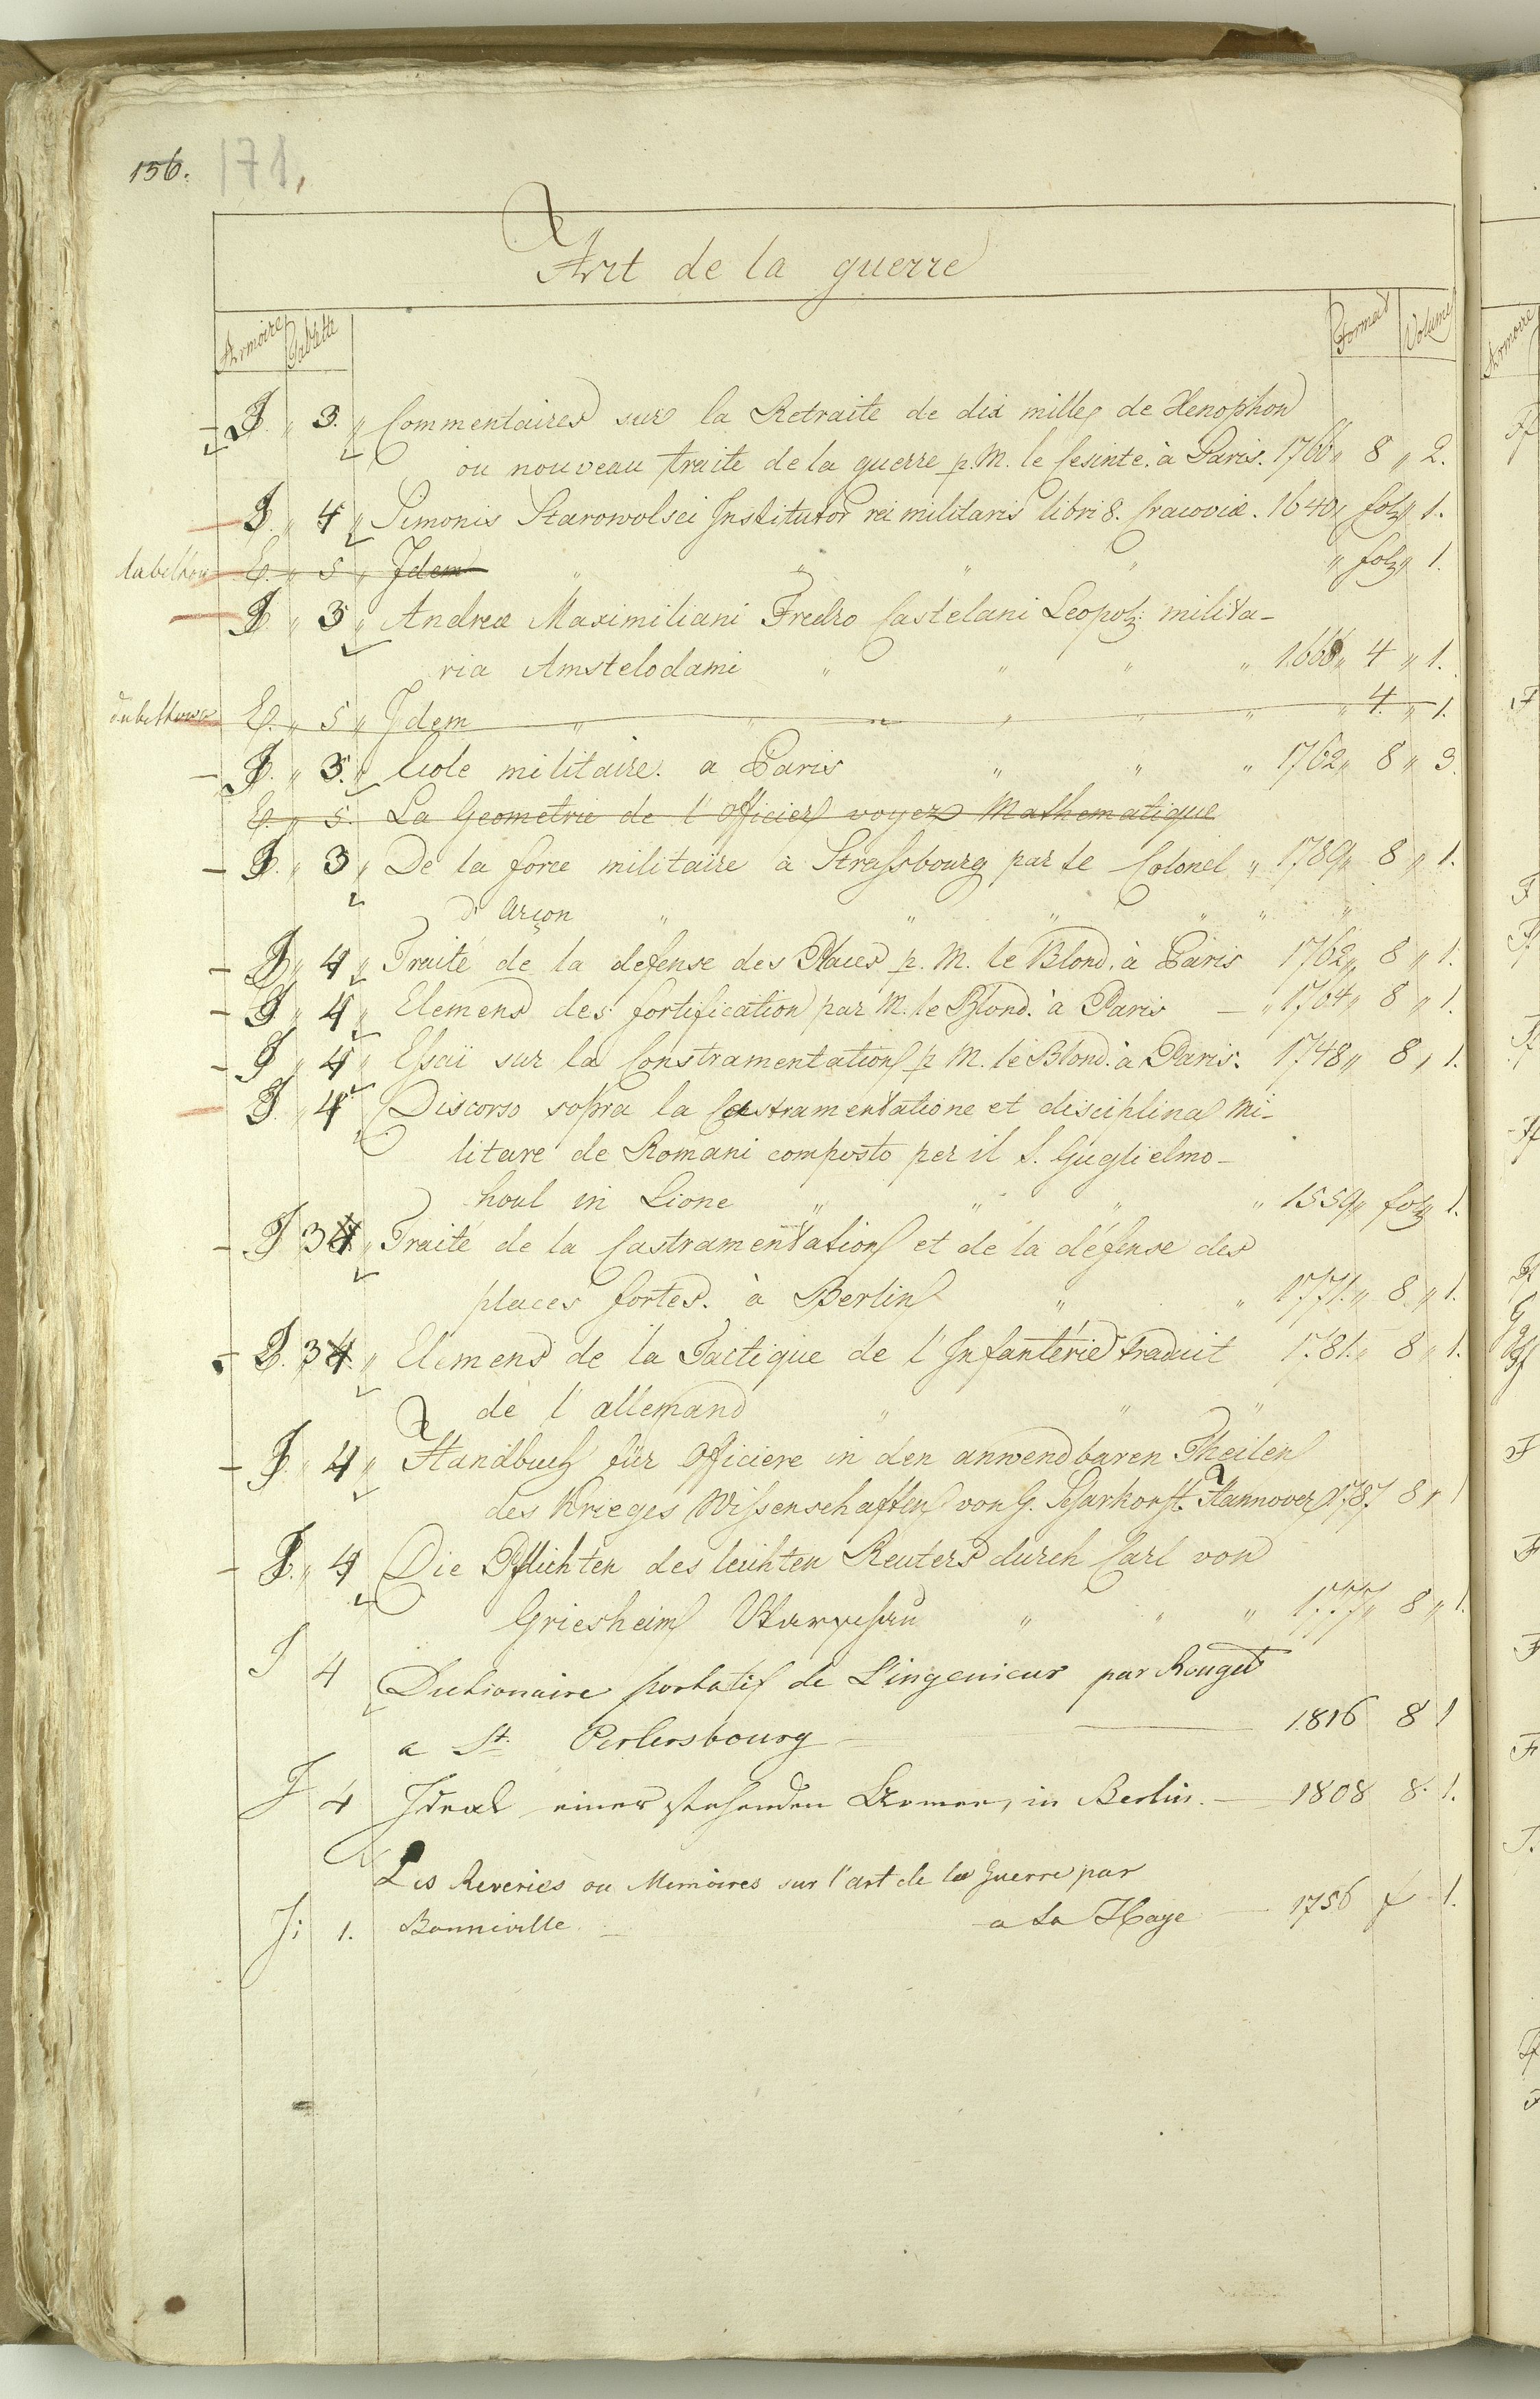 156. 171.
Art de la guerre
Armoire Tablette Format Volume
J. " 3. " Commentaires sur la Retraite de dix mille de Xenophon
ou nouveau traite de la guerre p. M. le Cointe. à Paris. 1766 " 8 " 2.
J. " 4 " Simonis Starowolsci Institutor rei militaris libri 8. Cracoviæ. 1640 " fol " 1.
E. " 5 " Idem " " " " " fol " 1.
J. " 3 " Andreæ Maximiliani Fredro Castelani Leopol: milita-
ria Amstelodami " " " " 1668 " 4 " 1.
dubeltowe E. " 5 " Idem " " " " " " " 4. " 1.
J. " 3. " Ecole militaire. a Paris " " " 1762 " 8 " 3.
E. " 5. La Geometrie de l'Officier voyez Mathematique
J. " 3 " De la force militaire à Strasbourg par le Colonel " 1789 " 8 " 1.
d'Arçon " " " " " "
J. " 4 " Traité de la defense des Places p. M. le Blond. à Paris 1762 " 8 " 1.
J " 4 " Elemens des fortification par M. le Blond. à Paris — " 1764 " 8 " 1.
J " 4 " Essaï sur la Constramentation p M. le Blond. à Paris. 1748 " 8 " 1.
J. " 4 " Discorso sopra la Castramentatione et disciplina mi-
litare de Romani composto per il S. Guglielmo
houl in Lione " " " " 1559 " fol " 1.
J 3 4 " Traité de la Castramentation et de la défense des
places fortes. à Berlin " " 1771. " 8. " 1.
J. 3 4 " Elemens de la Tactique de l'Infanterie traduit 1781. " 8 " 1.
de l'allemand " " "
J. " 4 " Handbuch für Officiere in den anwendbaren Theilen
des Krieges Wissenschaften von G. Scharhorst. Hannover 1787 8 " 1
J. " 4 Die Pflichten des leichten Reuters durch Carl von
Griesheim Warschau " " " 1777 " 8 " 1.
J 4 Dictionaire portatif de L'ingenieur par Rouget
a St. Petersbourg — 1816 8 1
J 4 Ideal einer stehenden Armee, in Berlin. — 1808 8. 1.
Les Reveries ou Memoires sur l'art de la Guerre par
J: 1. Bonneville — a La Haye — 1756 f 1.